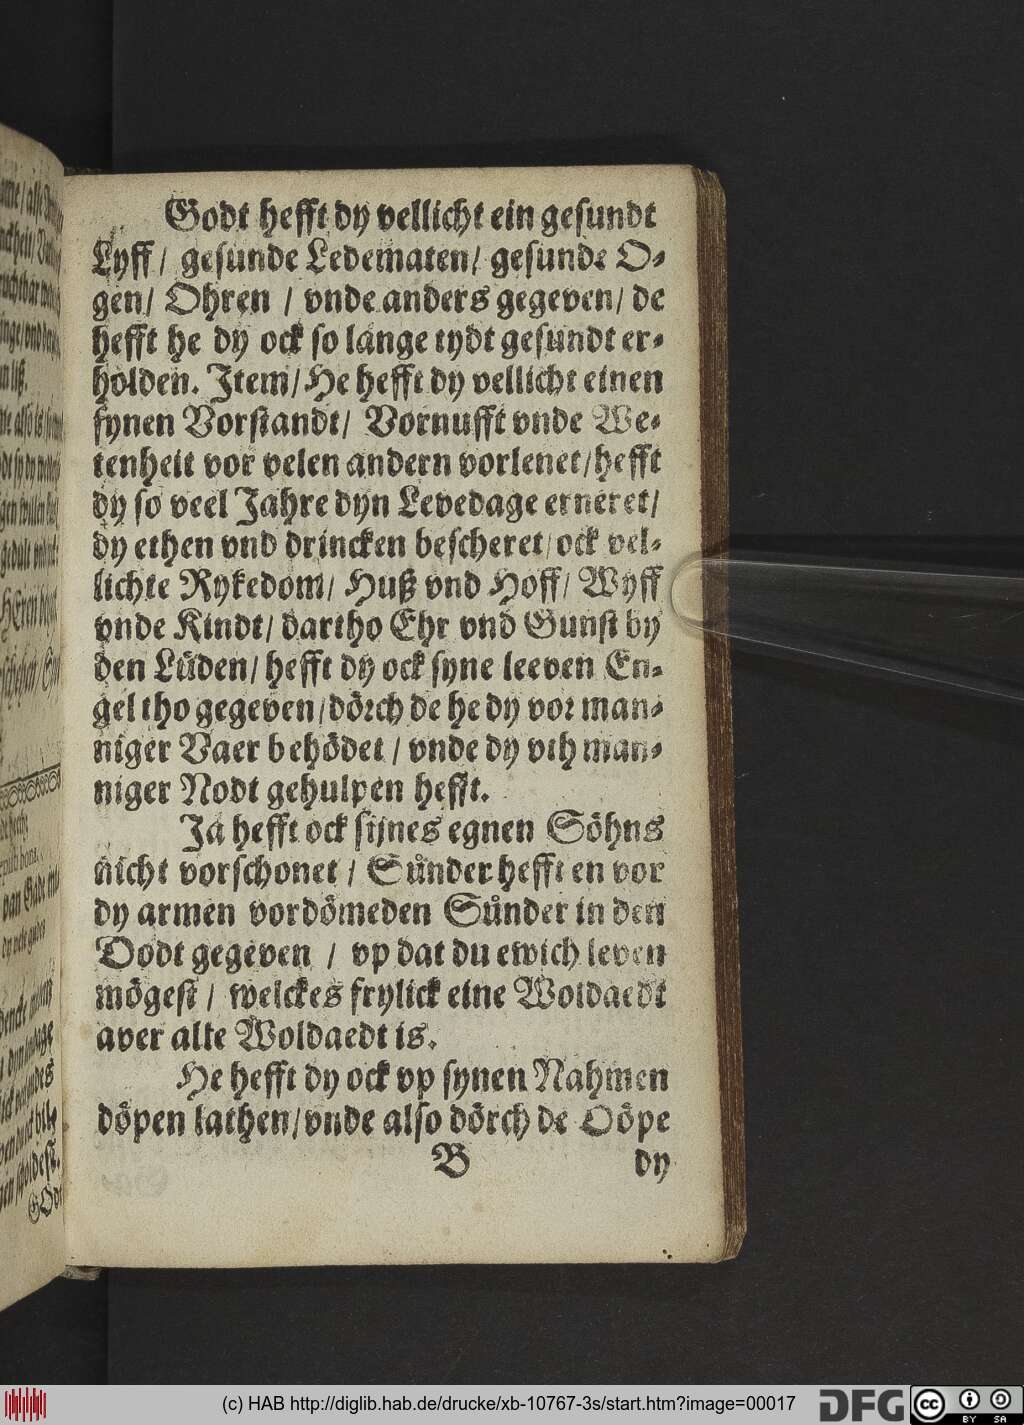 Godt hefft dy vellicht ein gesundt
Lyff / gesunde Ledematen / gesunde O-
gen / Ohren / vnde anders gegeven / de
hefft he dy ock so lange tydt gesundt er-
holden. Item / He hefft dy vellicht einen
fynen Vorstandt / Vornufft vnde We-
tenheit vor velen andern vorlenet / hefft
dy so veel Jahre dyn Levedage erneret /
dy ethen vnd drincken bescheret / ock vel-
lichte Rykedom / Huß vnd Hoff / Wyff
vnde Kindt / dartho Ehr vnd Gunst by
den Lüden / hefft dy ock syne leeven En-
gel tho gegeven / dörch de he dy vor man-
niger Vaer behödet / vnde dy vth man-
niger Nodt gehulpen hefft.
Ja hefft ock sijnes egnen Söhns
nicht vorschonet / Sünder hefft en vor
dy armen vordömeden Sünder in den
Dodt gegeven / vp dat du ewich leven
mögest / welckes frylick eine Woldaedt
aver alle Woldaedt is.
He hefft dy ock vp synen Nahmen
döpen lathen / vnde also dörch de Döpe
B dy
(c) HAB http://diglib.hab.de/drucke/xb-10767-3s/start.htm?image=00017
DFG
cc BY SA